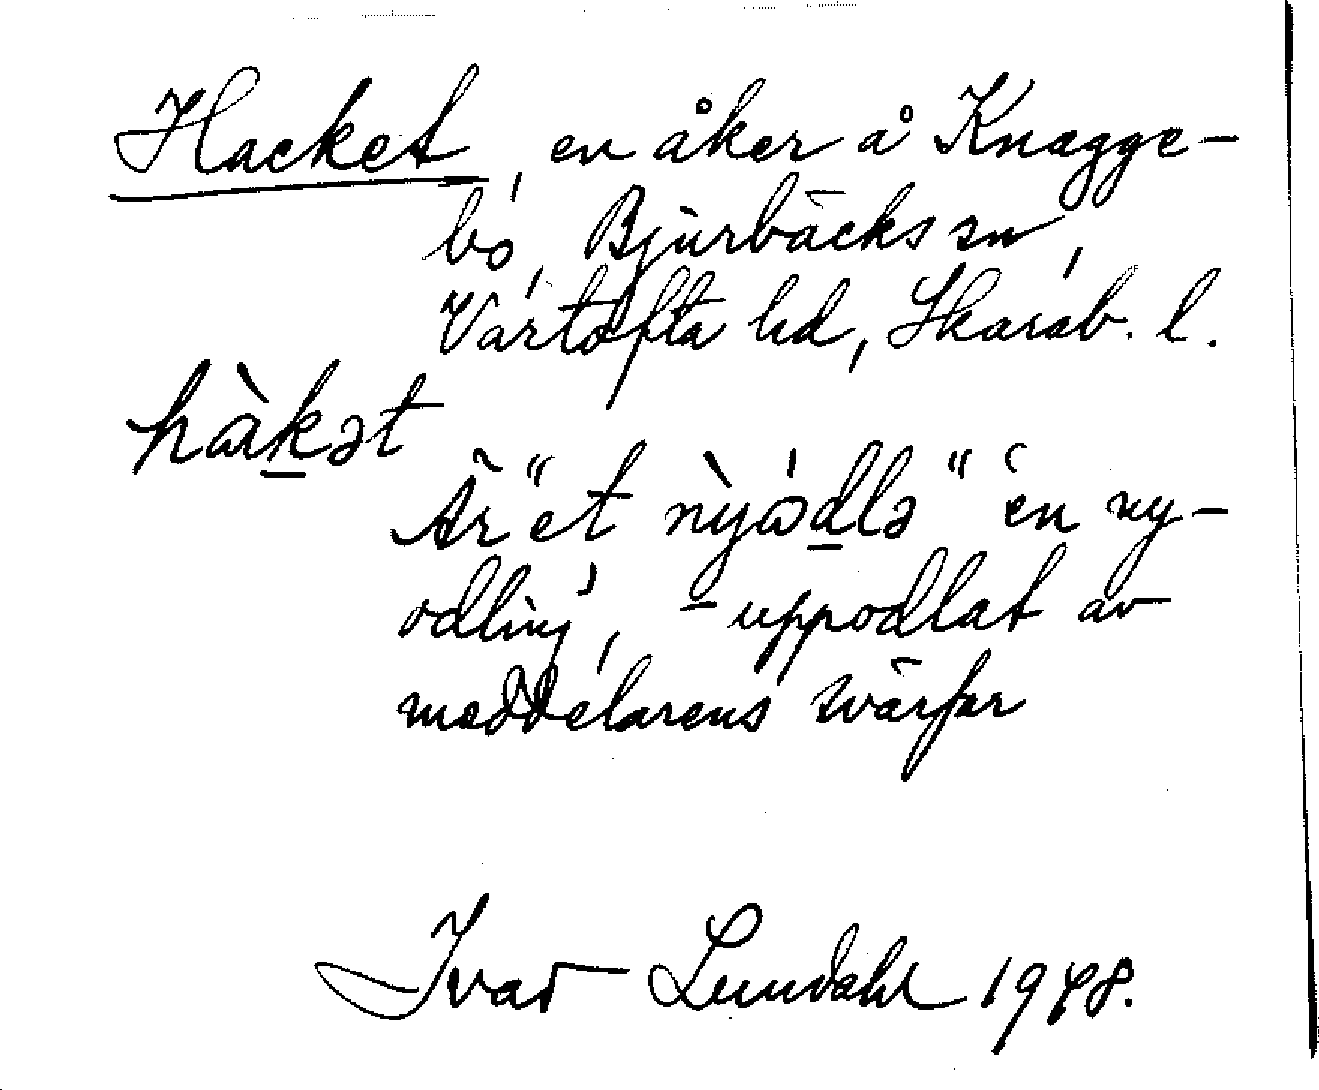 Hacket, en åker å Knagge-
bo, Bjurbäcks sn,
Vartofta hd, Skarab. l.
hàk̲ət
Är "et nỳɷ́d̲lə" 'en ny-
odling', - uppodlat av
meddelarens svärfar
Ivar Lundahl 1948.